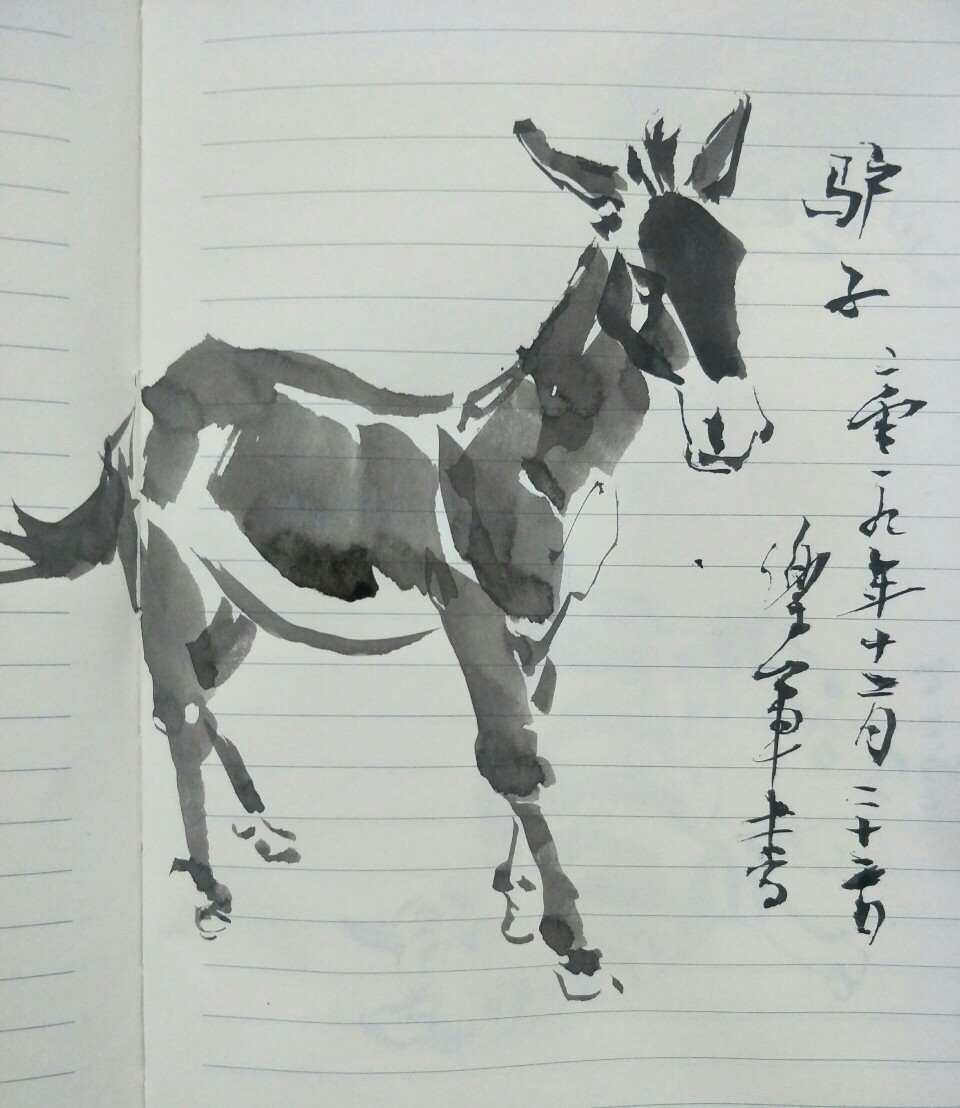 驴子 二零一九年十二月二十五日
樂軍書